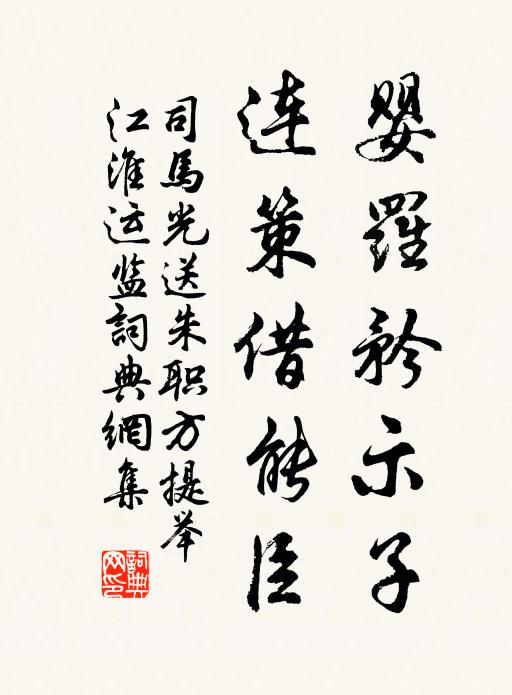 婴羅矜示子
連策借能臣
司馬光送朱职方提举
江淮运盐詞典網集
詞典網印